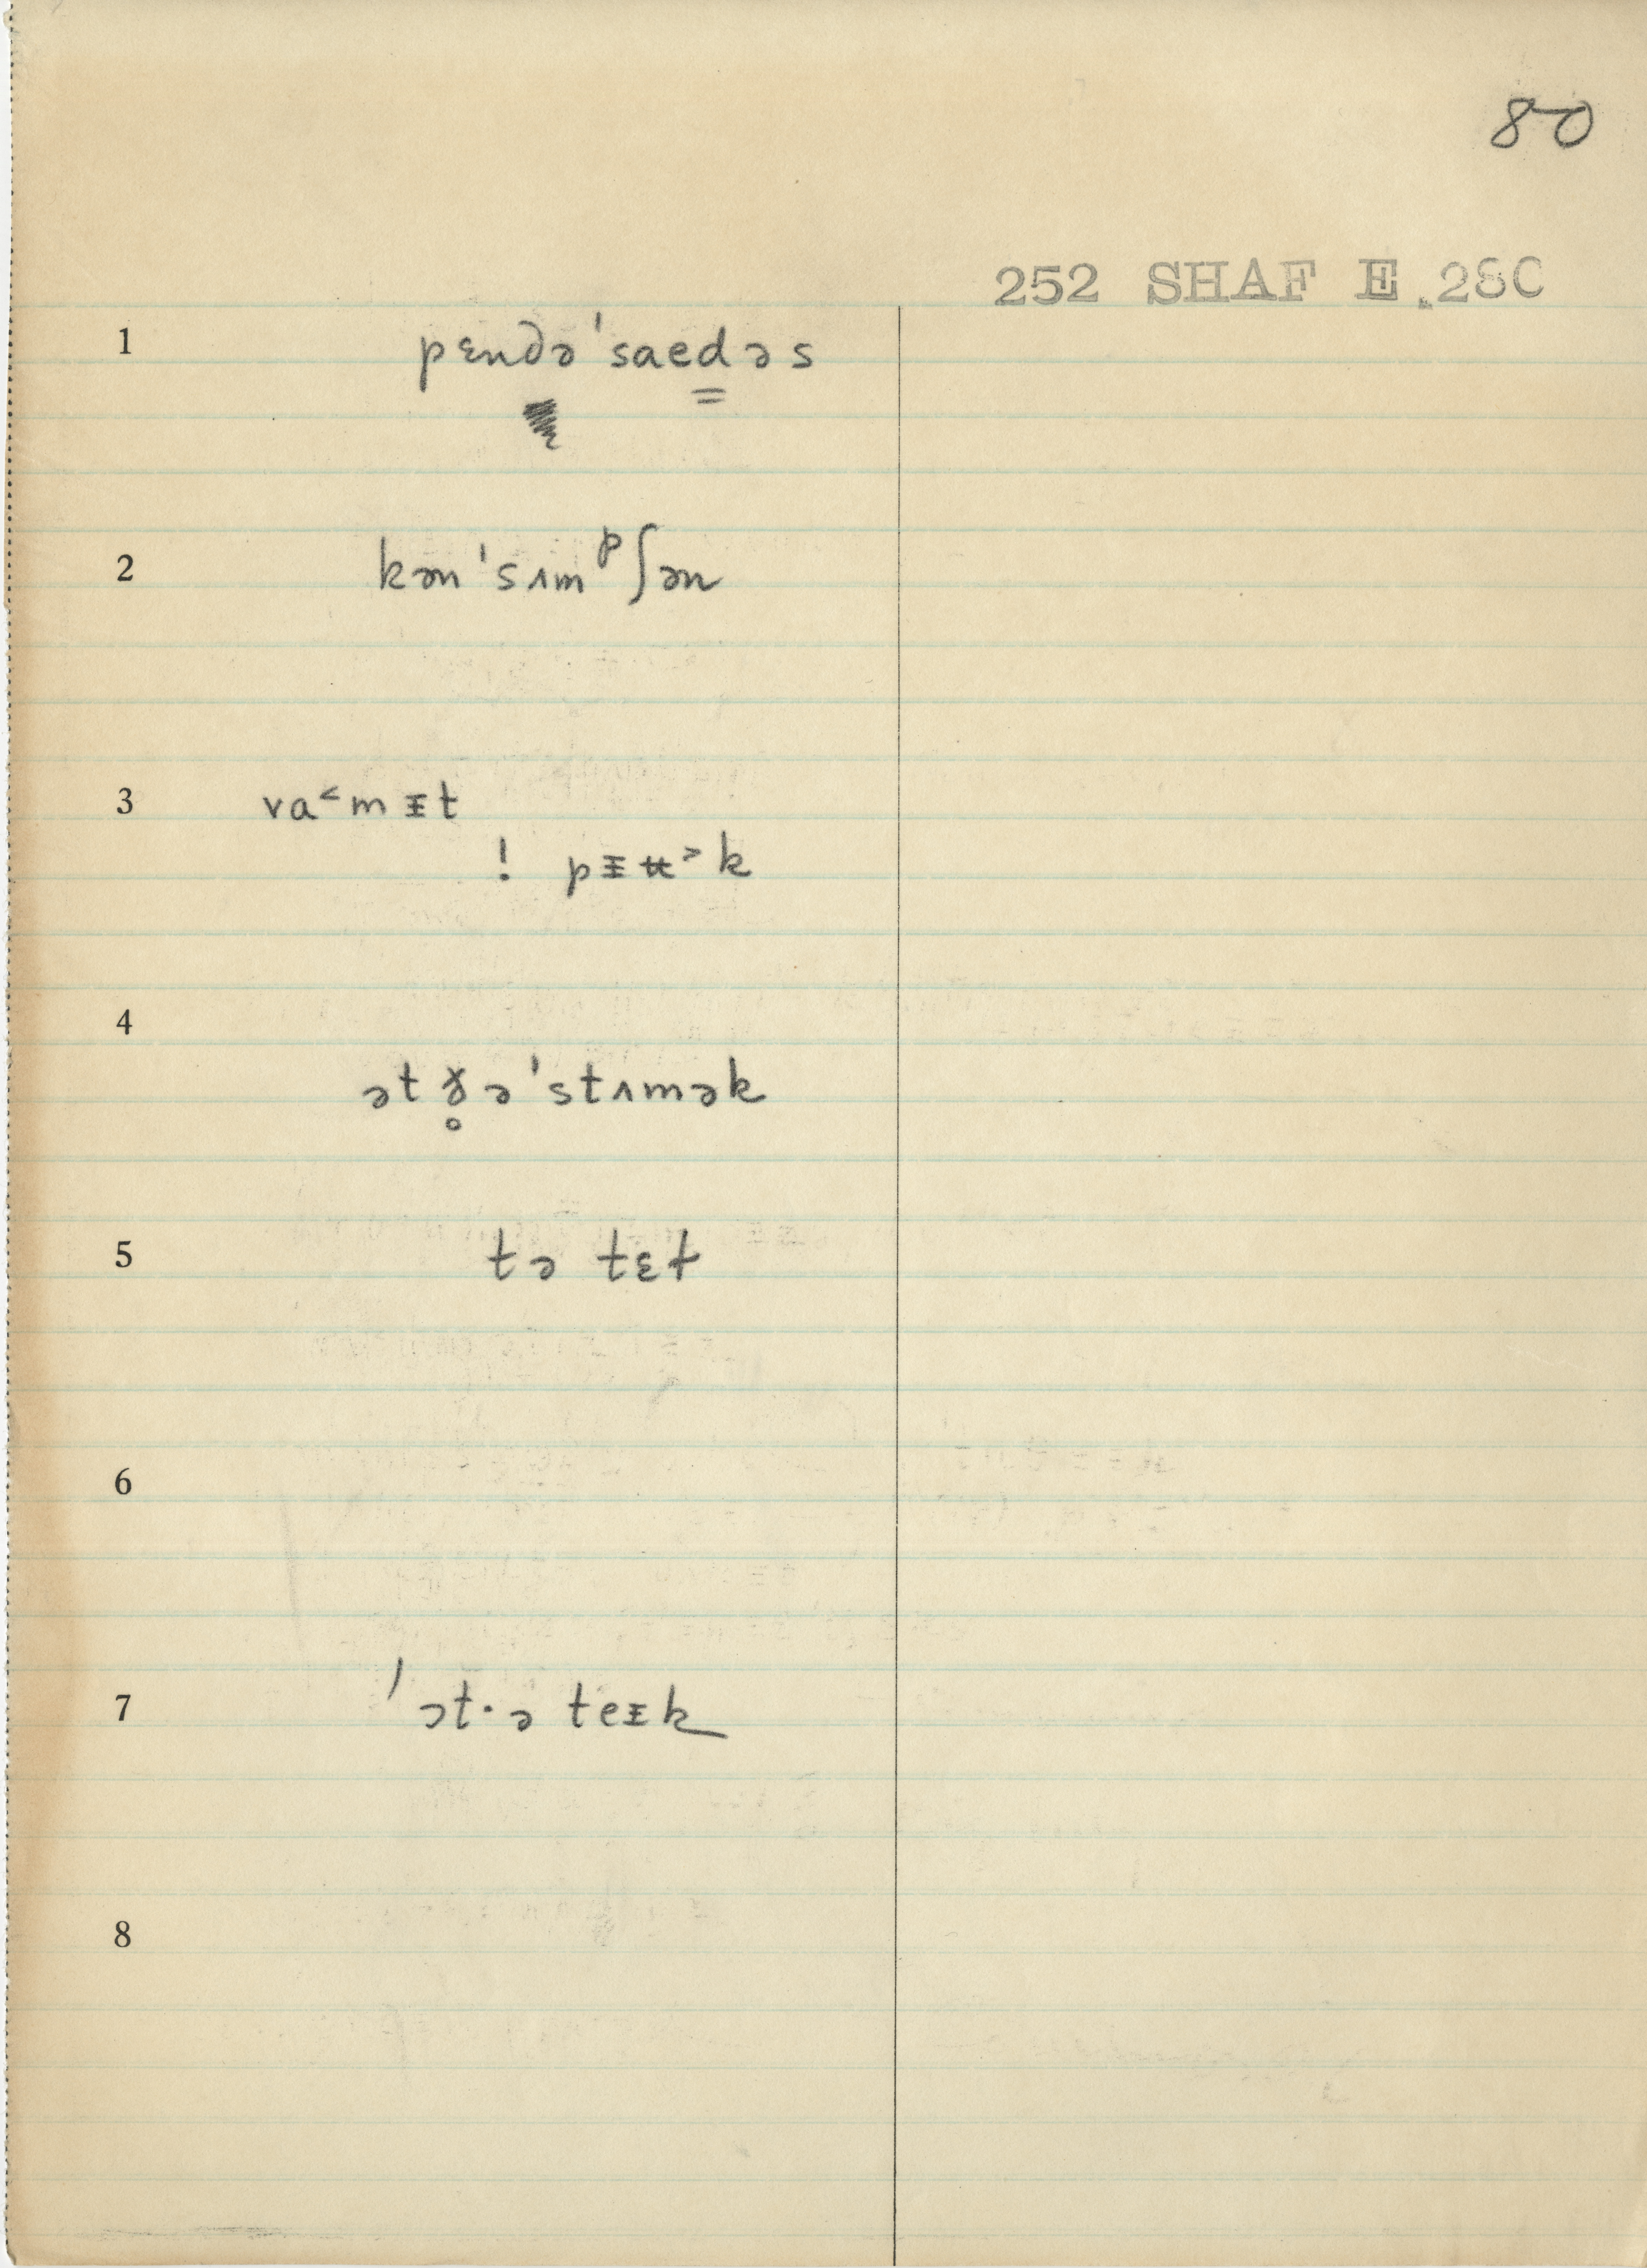 80
252 SHAF E.28C
1 pɛndə'saedəs
2 kən'sʌmᵖʃən
3 va˂mɪt
! pɪʉ˃k
4 ət ɣ̥ə'stʌmək
5 tə tɛt
6
7 'ət·ə teɪk
8